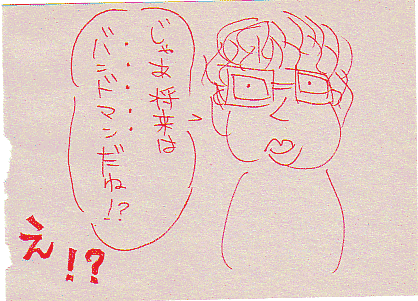 じゃあ将来は
バンドマンだね!?
え!?